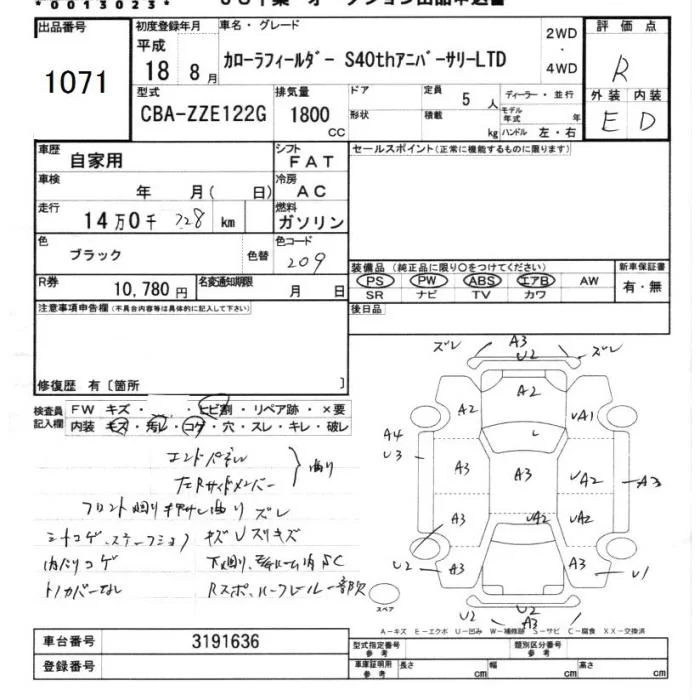 *0013023*
出品番号 1071
初度登録年月 平成 18 8月
車名・グレード カローラフィールダー S40thアニバーサリーLTD
2WD・4WD
評価点 R
外装 内装
E D
型式 CBA-ZZE122G
排気量 1800 CC
ドア 形状
定員 5 人
積載 kg
ディーラー・並行
モデル年式 年
ハンドル 左・右
車歴 自家用
シフト FAT
セールスポイント(正常に機能するものに限ります)
車検 年 月( 日)
冷房 AC
走行 14万0千 728 km
燃料 ガソリン
色 ブラック 色替
色コード 209
装備品 (純正品に限り〇をつけてください)
新車保証書
PS PW ABS エアB AW
有・無
SR ナビ TV カワ
R券 10,780円
名変通知期限 月 日
後日品
注意事項申告欄(不具合内容等は具体的に記入して下さい)
修復歴 有〔箇所 〕
検査員記入欄
FW キズ・ ・ヒビ割・リペア跡・×要
内装 キズ・汚レ・コゲ・穴・スレ・キレ・破レ
エンドパネル
左Rサイドメンバー
曲り
フロント廻り
曲り ズレ
シートコゲ
キズ U スリキズ
内ハリコゲ
下廻り
SC
トノカバーなし
Rスポ
ズレ A3 ズレ
U2
A2
A2 UA1
A4
U3
A3 A3 UA2 A3
A3 UA2 UA2
U2 A3 A3 U1
U2 U2 U2
A3
スペア
A−キズ E−エクボ U−凹み W−補修跡 S−サビ C−腐食 XX−交換済
車台番号 3191636
登録番号
型式指定番号 参考
類別区分番号 参考
車庫証明用 参考 長さ cm 幅 cm 高さ cm